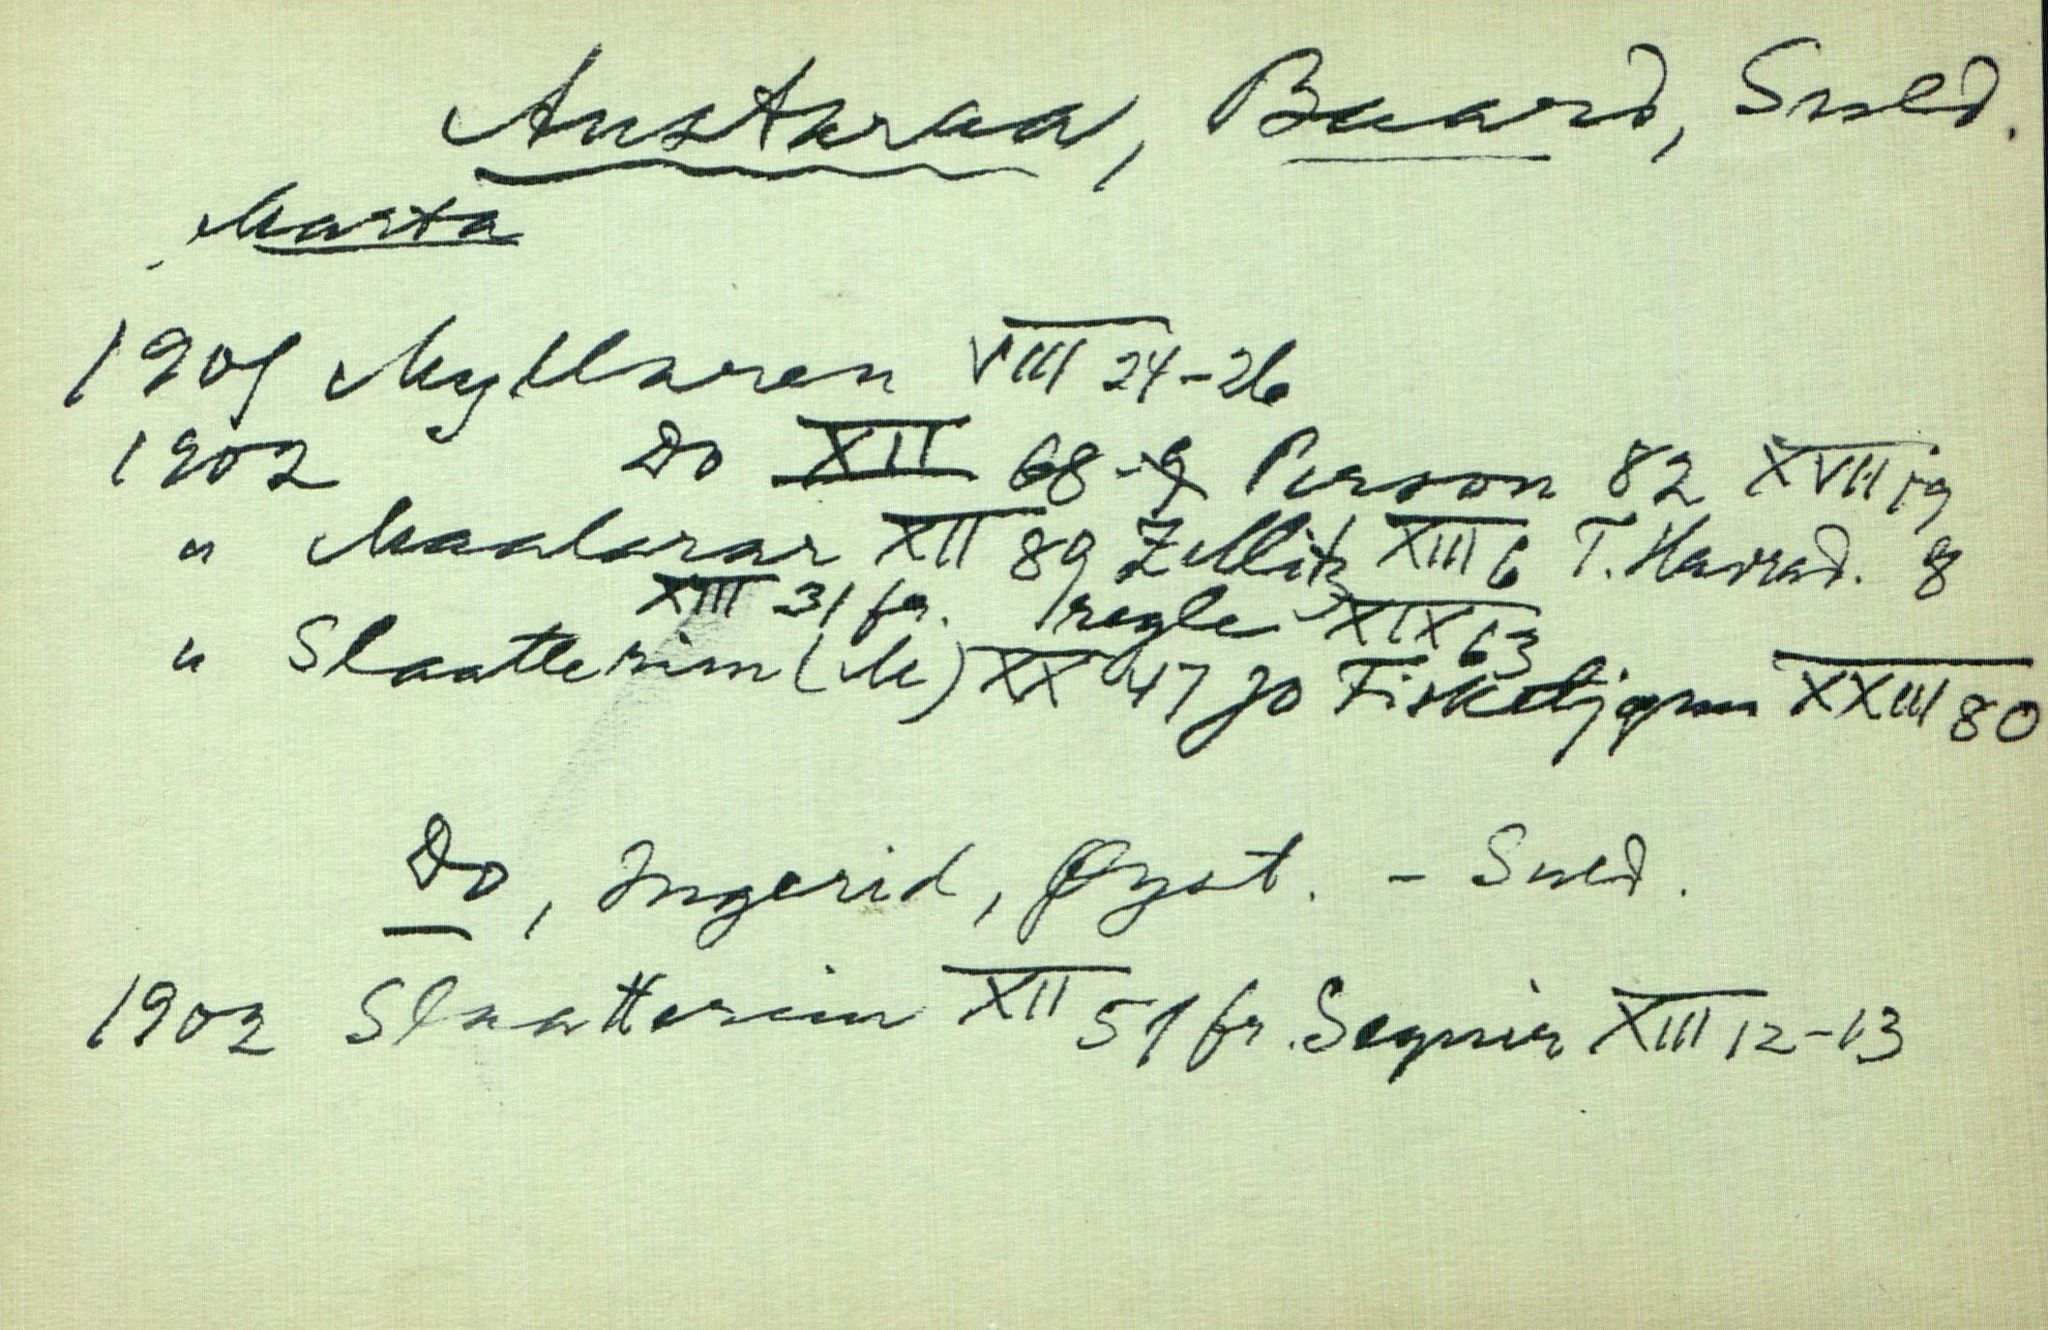 Austaraa, Baard, Suld.
Marta
1901 Myllaren VIII 24-26
1902 Do XII 68-9 Person 82 XVII 19
" Maalarar XII 89 XIII 6 T. 8
XIII 31 fr. regle XIX 63
" Slaatterim (M) XX 47 Jo Fisketjønn XXIII 80
Do, Ingerid, Øyst. - Suld.
1902 Slaatterim XII 51 fr. XIII 12-13